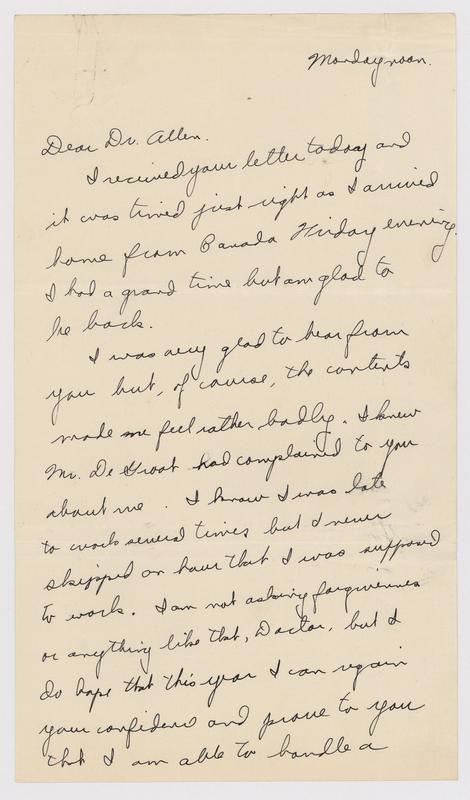 Monday noon.
Dear Dr. Allen.
I received your letter today and
it was timed just right as I arrived
home from Canada Friday evening.
I had a grand time but am glad to
be back.
I was very glad to hear from
you but, of course, the contents
made me feel rather badly. I knew
Mr. De Groot had complained to you
about me. I know I was late
to work several times but I never
skipped an hour that I was supposed
to work. I am not asking forgiveness
or anything like that, Doctor, but I
do hope that this year I can regain
your confidence and prove to you
that I am able to handle a